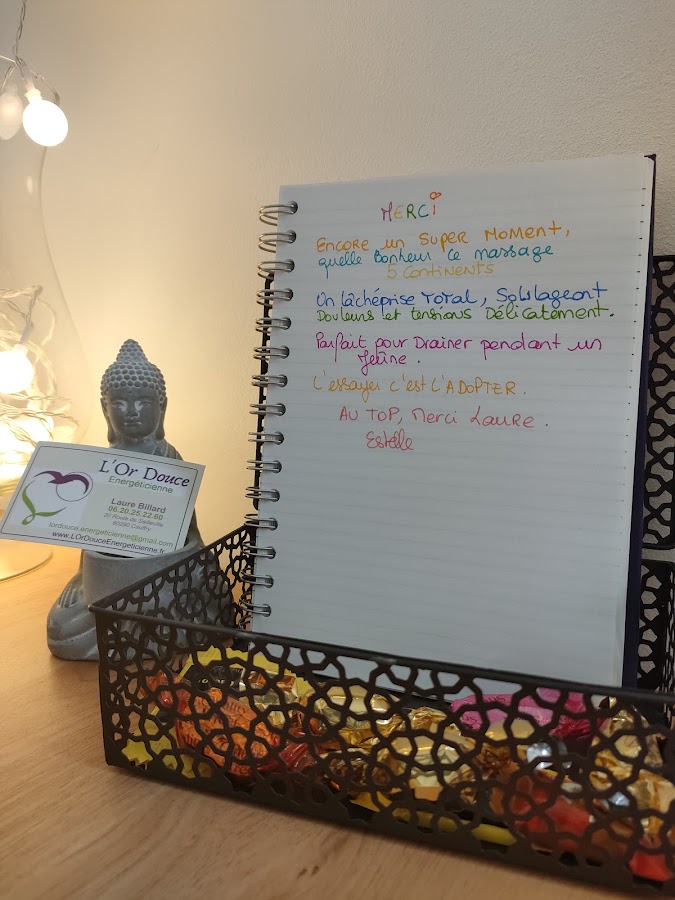 MERCi
ENCORE un SUPER MOMENT,
quelle BonHeur Ce massage
5 CONTINENTS
Un lâchéprise TOTAL, Soulageant
Douleurs et tensions Délicatement.
Parfait pour Drainer pendant un
Jeûne.
L'essayer c'est L'ADOPTER.
AU TOP, Merci Laure.
Estelle
L'Or Douce
Energéticienne
Laure Billard
06.20.25.22.60
60290 Cauffry
lordouce.energeticienne@gmail.com
www.LOrDouceEnergeticienne.fr